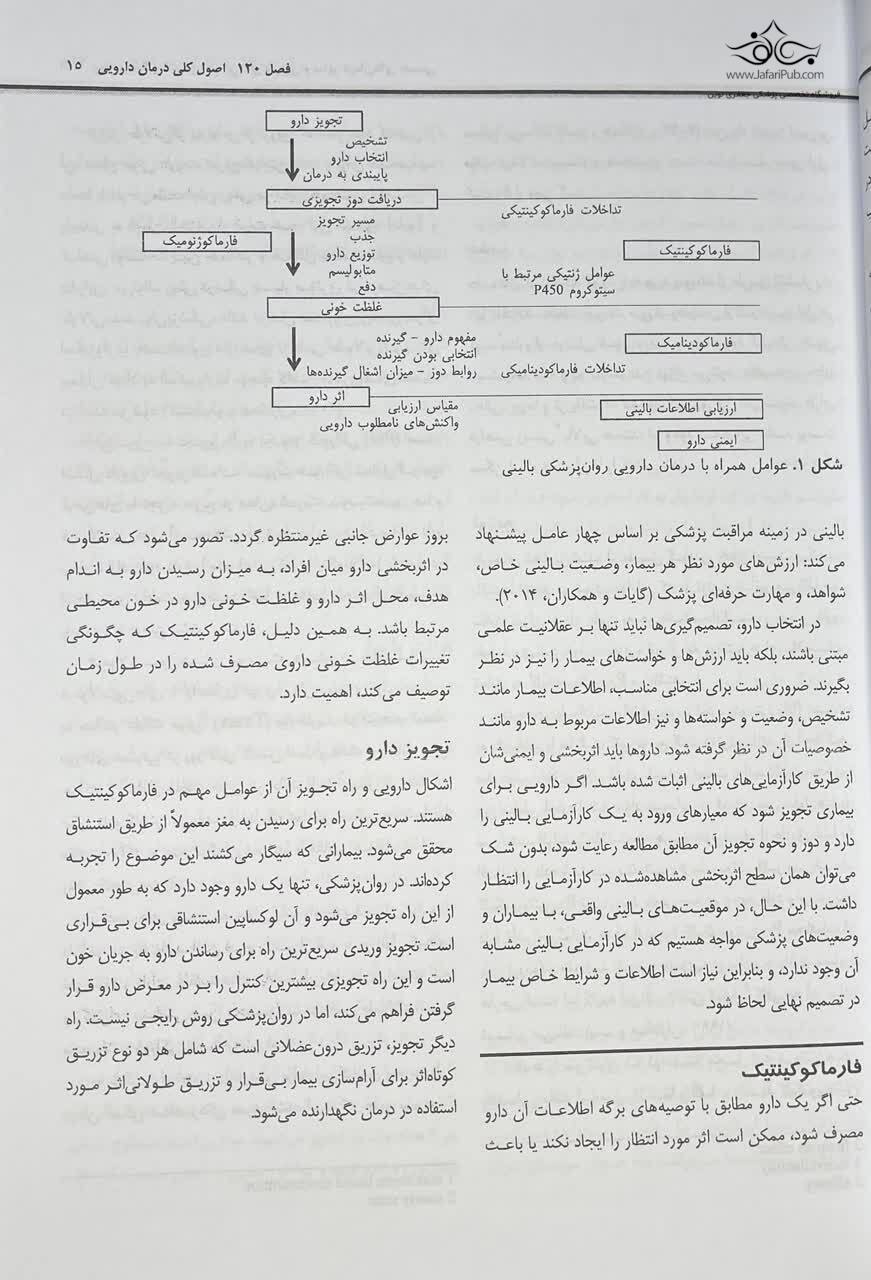 بهاف
www.JafariPub.com
فروشگاه تخصصی پزشکی جعفری نوین
فصل ۱۲۰ اصول کلی درمان دارویی ۱۵
تجویز دارو
تشخیص
انتخاب دارو
پایبندی به درمان
دریافت دوز تجویزی
تداخلات فارماکوکینتیکی
مسیر تجویز
جذب
توزیع دارو
متابولیسم
دفع
فارماکوژنومیک
فارماکوکینتیک
عوامل ژنتیکی مرتبط با
سیتوکروم P450
غلظت خونی
مفهوم دارو - گیرنده
انتخابی بودن گیرنده
روابط دوز - میزان اشغال گیرنده‌ها
فارماکودینامیک
تداخلات فارماکودینامیکی
اثر دارو
مقیاس ارزیابی
واکنش‌های نامطلوب دارویی
ارزیابی اطلاعات بالینی
ایمنی دارو
شکل ۱. عوامل همراه با درمان دارویی روان‌پزشکی بالینی
بالینی در زمینه مراقبت پزشکی بر اساس چهار عامل پیشنهاد
می‌کند: ارزش‌های مورد نظر هر بیمار، وضعیت بالینی خاص،
شواهد، و مهارت حرفه‌ای پزشک (گایات و همکاران، ۲۰۱۴).
در انتخاب دارو، تصمیم‌گیری‌ها نباید تنها بر عقلانیت علمی
مبتنی باشند، بلکه باید ارزش‌ها و خواست‌های بیمار را نیز در نظر
بگیرند. ضروری است برای انتخابی مناسب، اطلاعات بیمار مانند
تشخیص، وضعیت و خواسته‌ها و نیز اطلاعات مربوط به دارو مانند
خصوصیات آن در نظر گرفته شود. داروها باید اثربخشی و ایمنی‌شان
از طریق کارآزمایی‌های بالینی اثبات شده باشد. اگر دارویی برای
بیماری تجویز شود که معیارهای ورود به یک کارآزمایی بالینی را
دارد و دوز و نحوه تجویز آن مطابق مطالعه رعایت شود، بدون شک
می‌توان همان سطح اثربخشی مشاهده‌شده در کارآزمایی را انتظار
داشت. با این حال، در موقعیت‌های بالینی واقعی، با بیماران و
وضعیت‌های پزشکی مواجه هستیم که در کارآزمایی بالینی مشابه
آن وجود ندارد، و بنابراین نیاز است اطلاعات و شرایط خاص بیمار
در تصمیم نهایی لحاظ شود.
فارماکوکینتیک
حتی اگر یک دارو مطابق با توصیه‌های برگه اطلاعات آن دارو
مصرف شود، ممکن است اثر مورد انتظار را ایجاد نکند یا باعث
بروز عوارض جانبی غیرمنتظره گردد. تصور می‌شود که تفاوت
در اثربخشی دارو میان افراد، به میزان رسیدن دارو به اندام
هدف، محل اثر دارو و غلظت خونی دارو در خون محیطی
مرتبط باشد. به همین دلیل، فارماکوکینتیک که چگونگی
تغییرات غلظت خونی داروی مصرف شده را در طول زمان
توصیف می‌کند، اهمیت دارد.
تجویز دارو
اشکال دارویی و راه تجویز آن از عوامل مهم در فارماکوکینتیک
هستند. سریع‌ترین راه برای رسیدن به مغز معمولاً از طریق استنشاق
محقق می‌شود. بیمارانی که سیگار می‌کشند این موضوع را تجربه
کرده‌اند. در روان‌پزشکی، تنها یک دارو وجود دارد که به طور معمول
از این راه تجویز می‌شود و آن لوکساپین استنشاقی برای بی‌قراری
است. تجویز وریدی سریع‌ترین راه برای رساندن دارو به جریان خون
است و این راه تجویزی بیشترین کنترل را بر در معرض دارو قرار
گرفتن فراهم می‌کند، اما در روان‌پزشکی روش رایجی نیست. راه
دیگر تجویز، تزریق درون‌عضلانی است که شامل هر دو نوع تزریق
کوتاه‌اثر برای آرام‌سازی بیمار بی‌قرار و تزریق طولانی‌اثر مورد
استفاده در درمان نگهدارنده می‌شود.